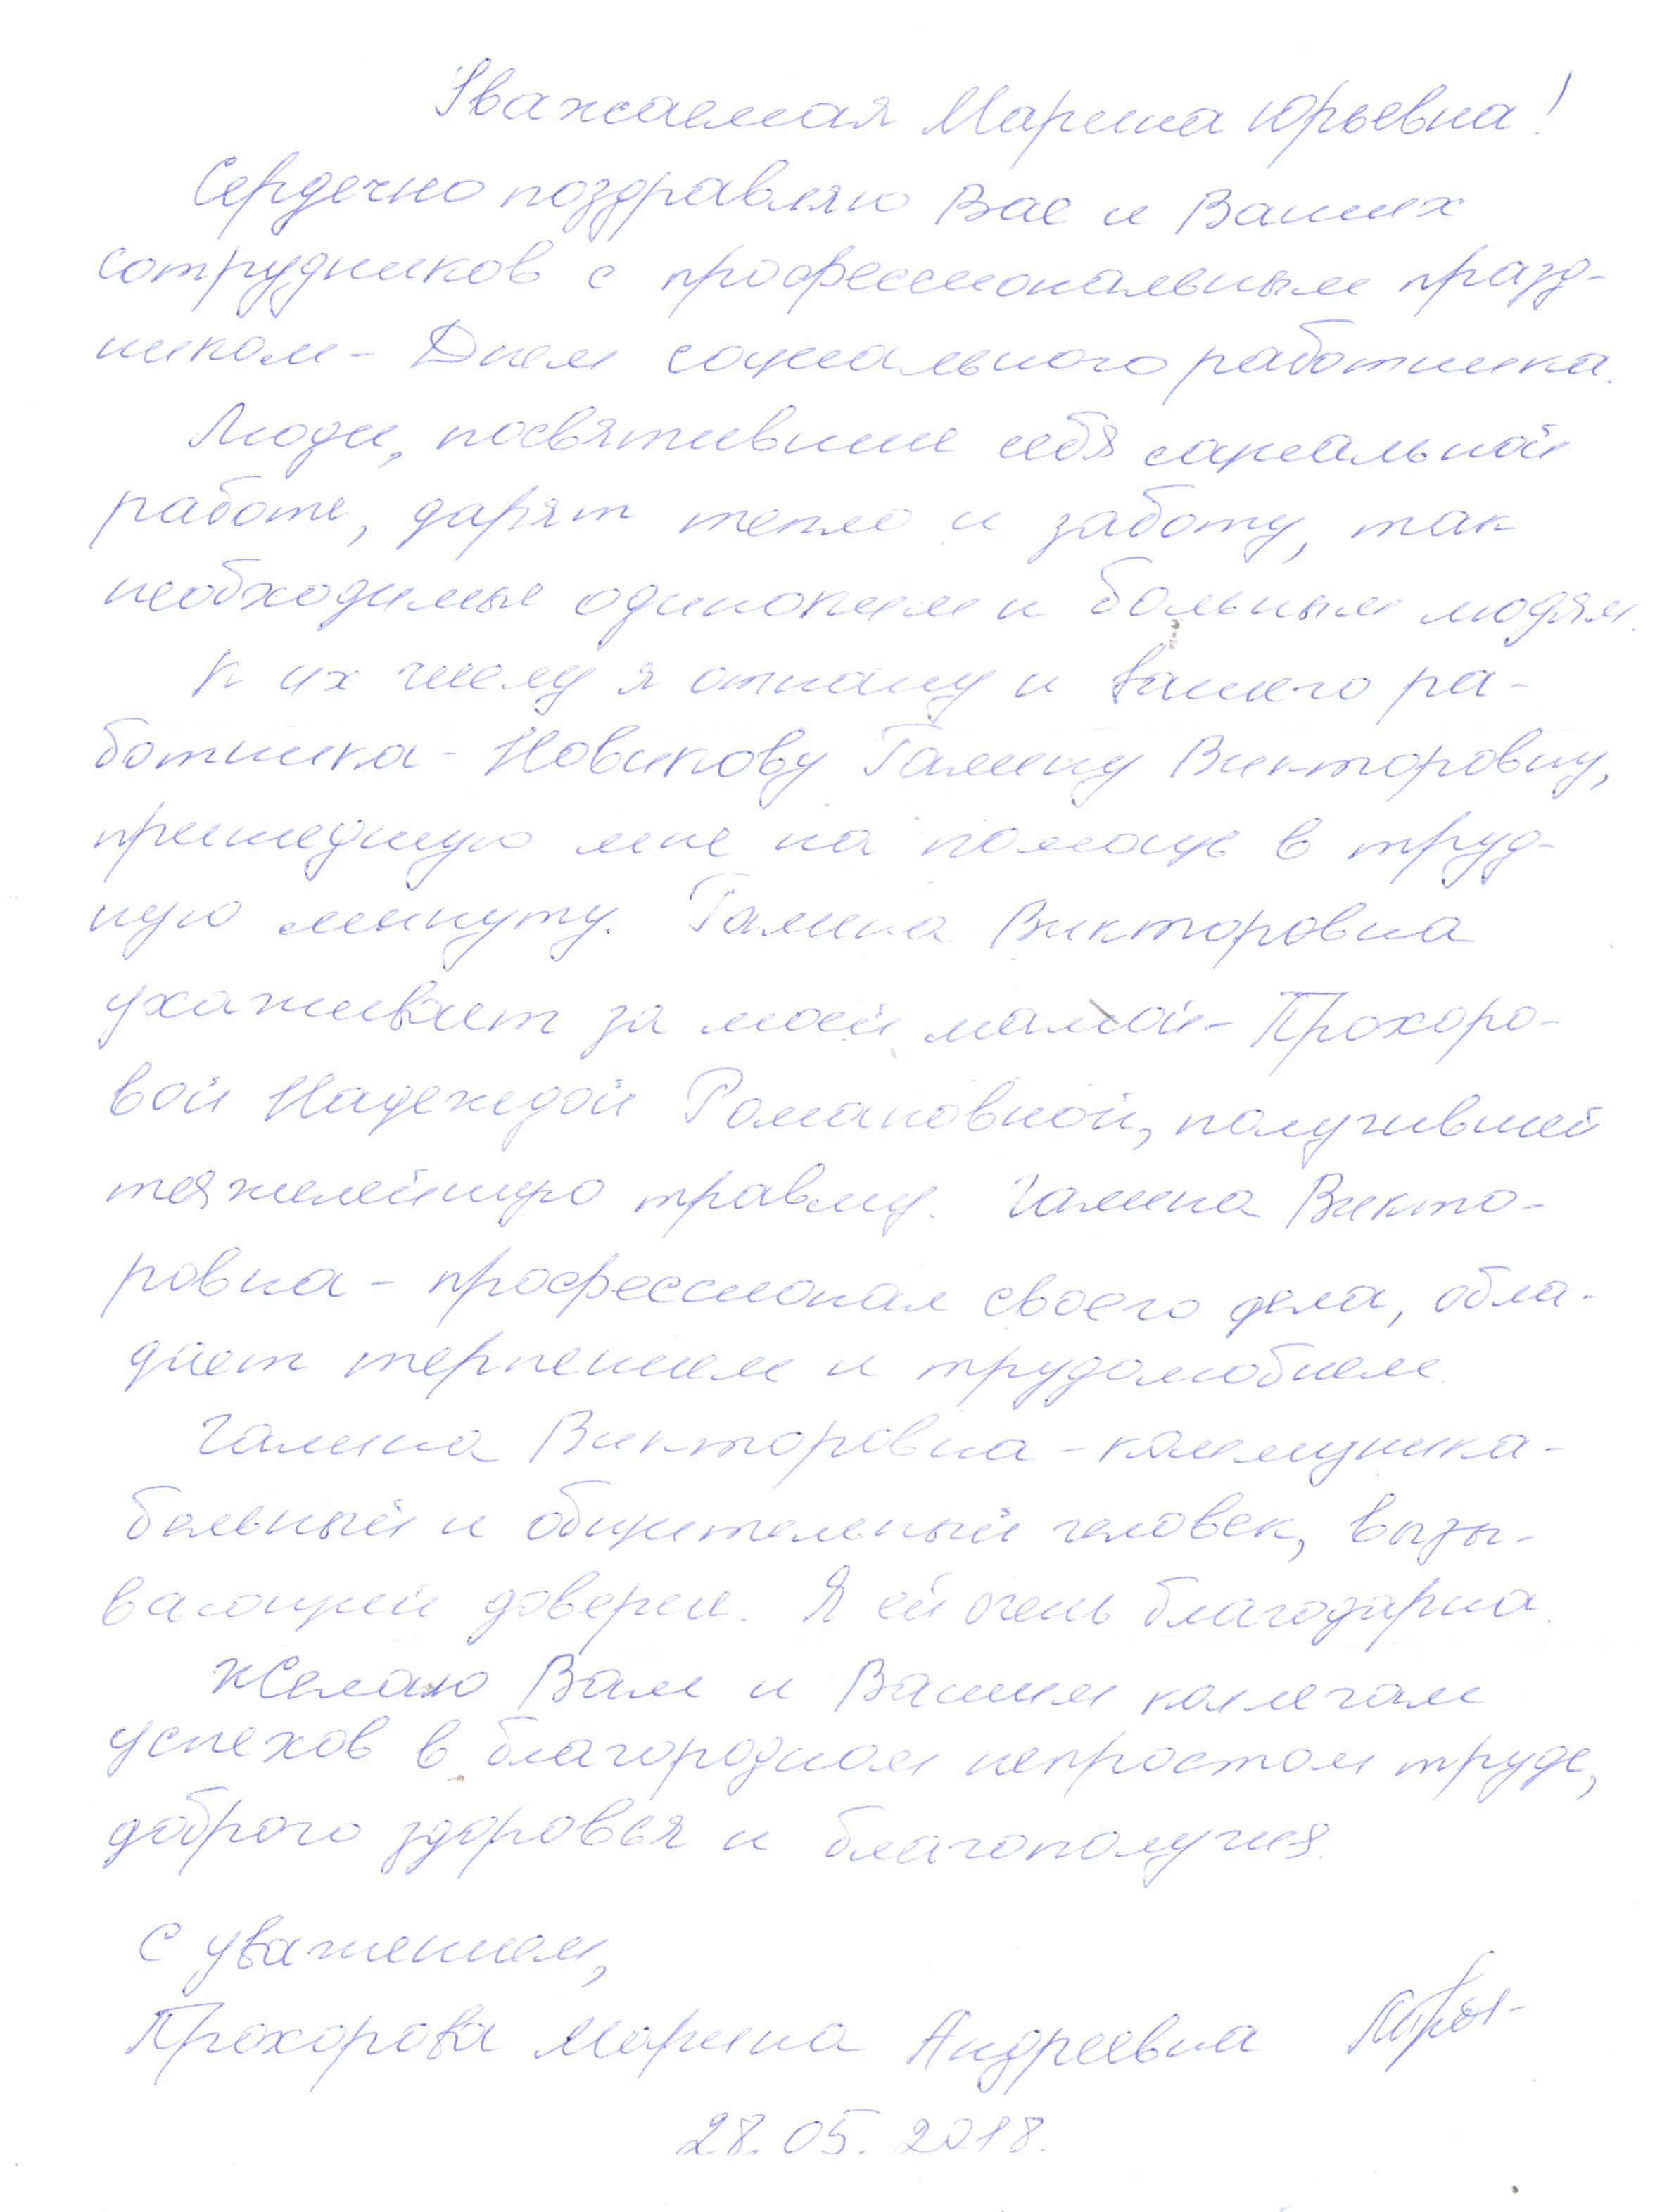 Уважаемая Марина Юрьевна!
Сердечно поздравляю Вас и Ваших
сотрудников с профессиональным празд-
ником - Днем социального работника.
Люди, посвятившие себя социальной
работе, дарят тепло и заботу, так
необходимые одиноким и больным людям.
К их числу я отношу и Вашего ра-
ботника - Новикову Галину Викторовну,
пришедшую мне на помощь в труд-
ную минуту. Галина Викторовна
ухаживает за моей мамой - Прохоро-
вой Надеждой Романовной, получившей
тяжелейшую травму. Галина Викто-
ровна - профессионал своего дела, обла-
дает терпением и трудолюбием.
Галина Викторовна - коммуника-
бельный и общительный человек, вызы-
вающий доверие. Я ей очень благодарна.
Желаю Вам и Вашим коллегам
успехов в благородном непростом труде,
доброго здоровья и благополучия.
С уважением,
Прохорова Марина Андреевна
28.05.2018